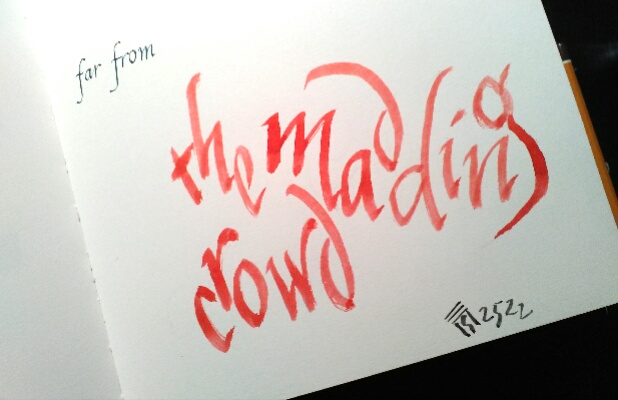 far from
the madding
crowd
2522